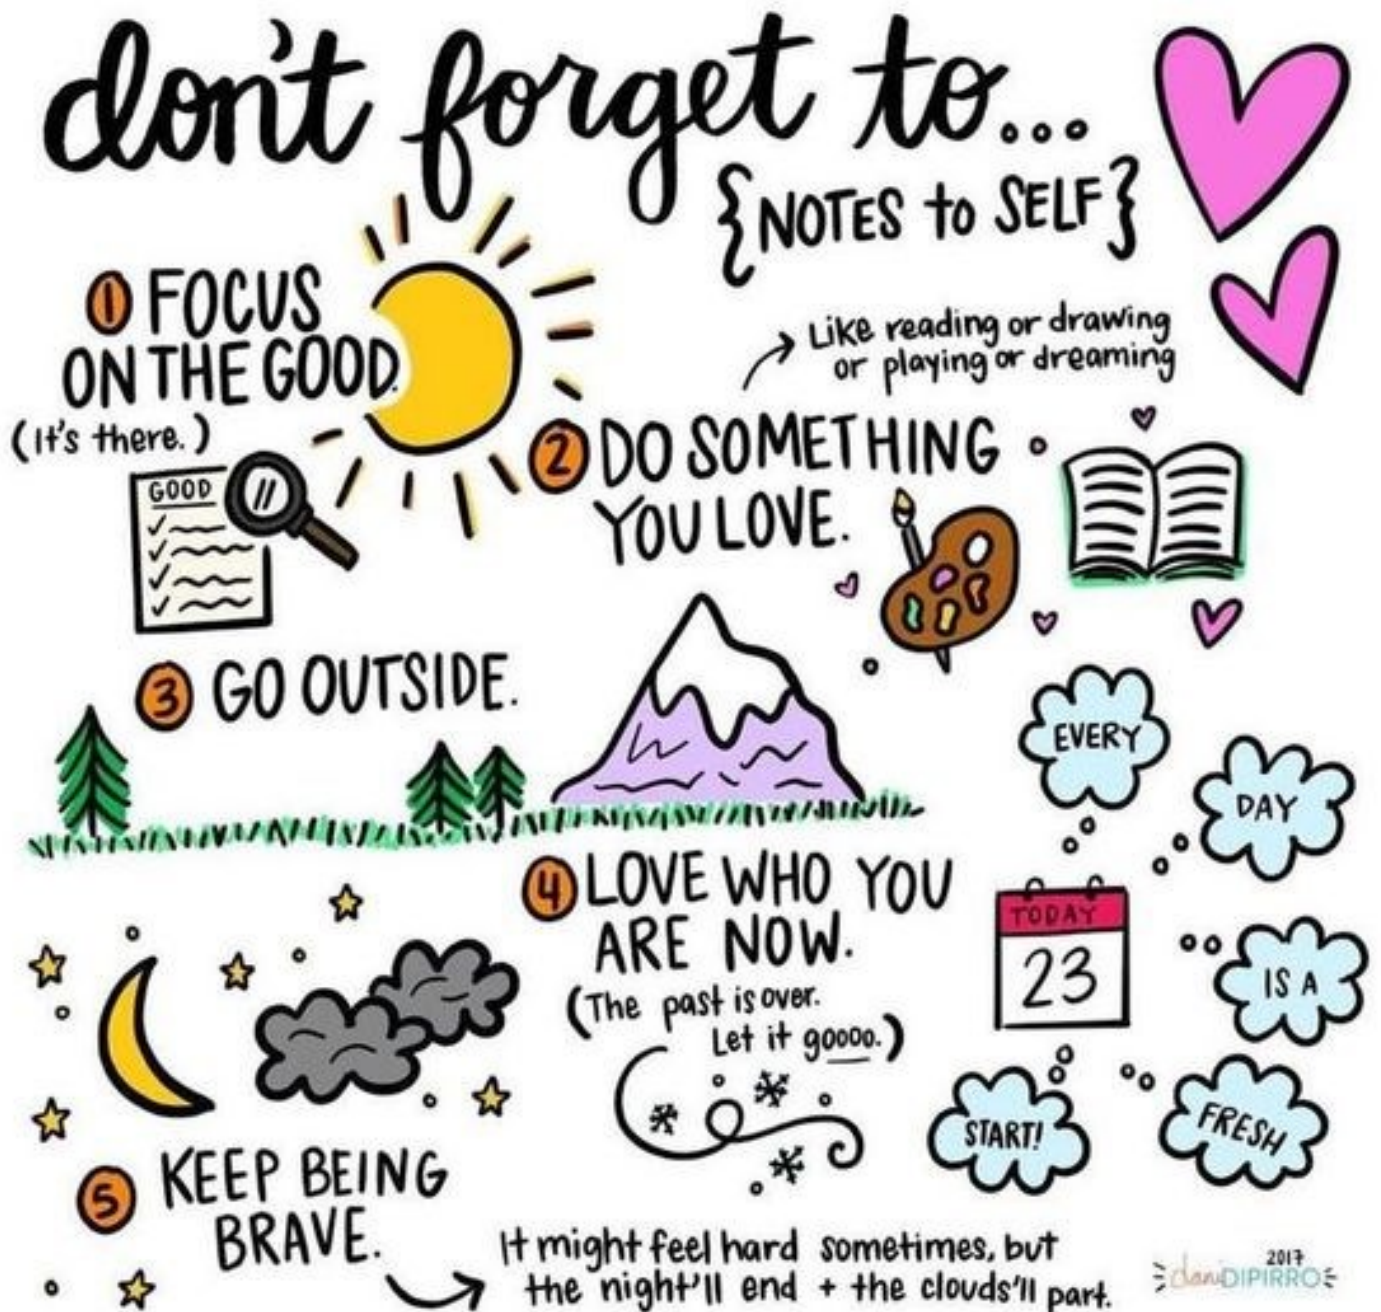 don't forget to...
{NOTES to SELF}
1 FOCUS
ON THE GOOD.
(It's there.)
GOOD
Like reading or drawing
or playing or dreaming
2 DO SOMETHING
YOU LOVE.
3 GO OUTSIDE.
4 LOVE WHO YOU
ARE NOW.
(The past is over.
Let it goooo.)
EVERY
DAY
IS A
FRESH
START!
TODAY
23
5 KEEP BEING
BRAVE.
It might feel hard sometimes, but
the night'll end + the clouds'll part.
2017
dani DIPIRRO